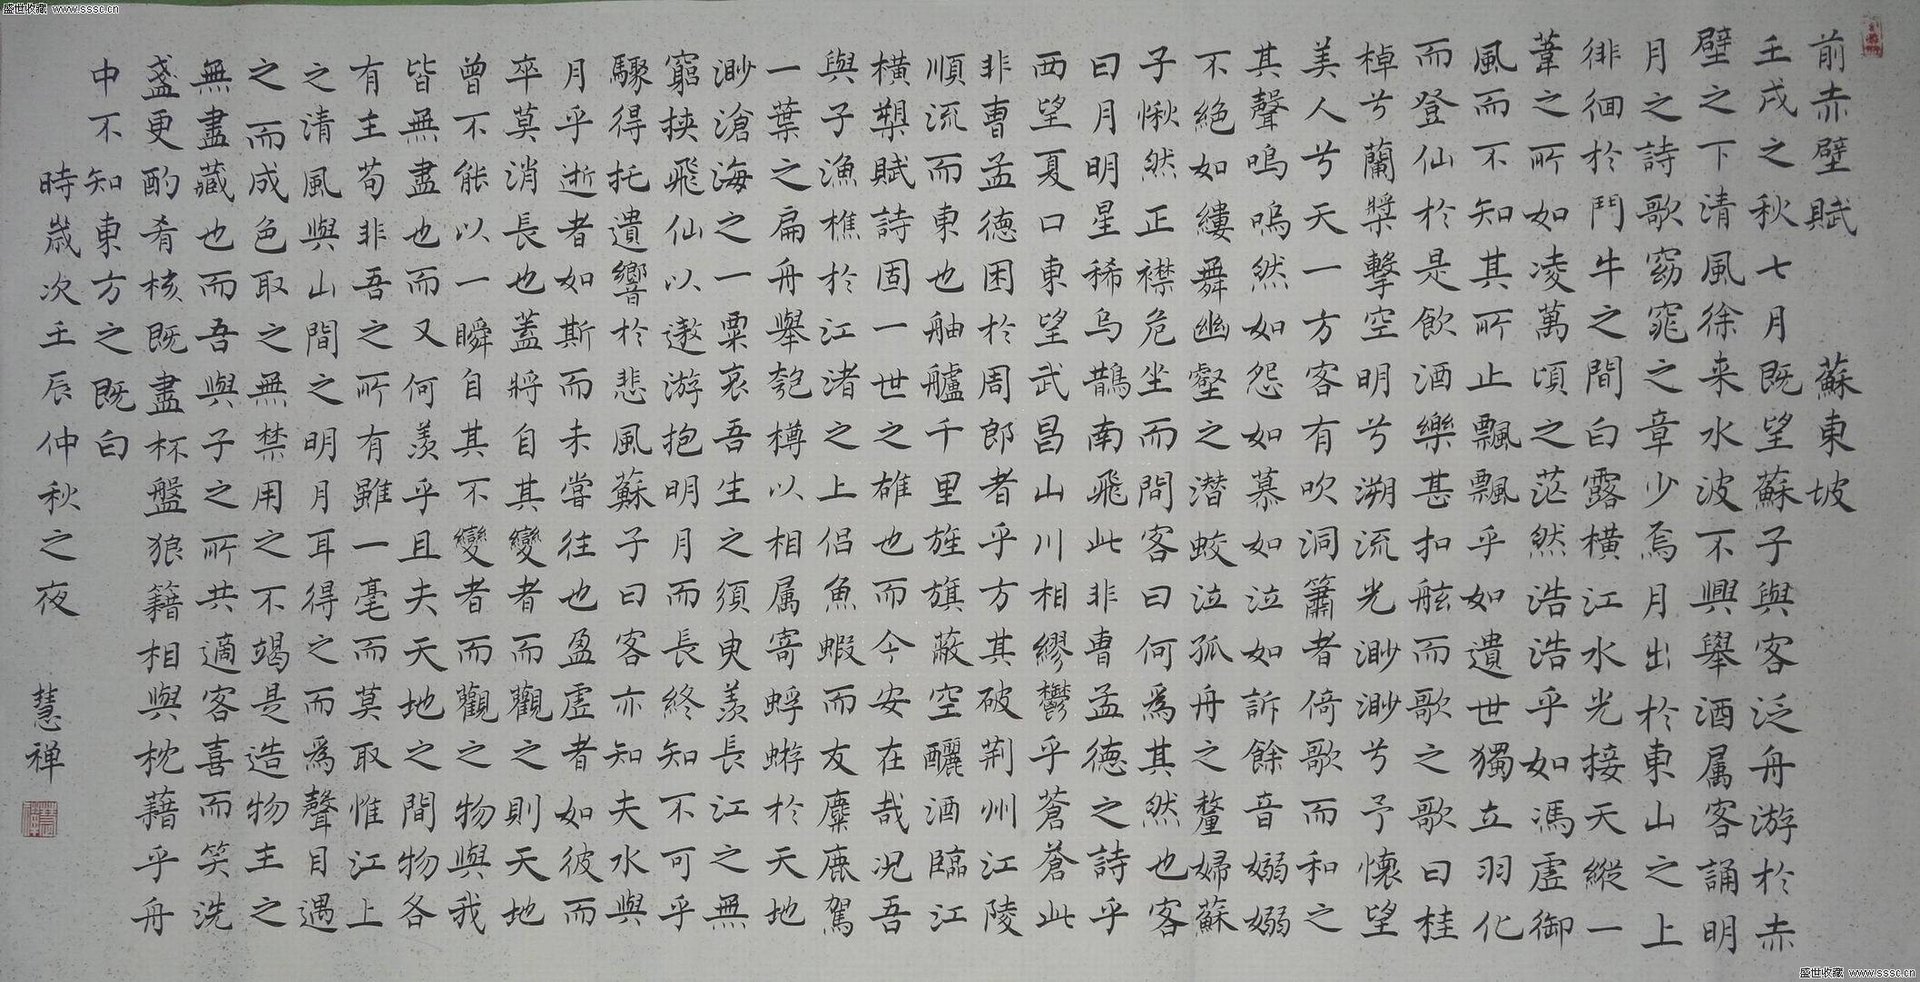 盛世收藏 www.sssc.cn
前赤壁賦 蘇東坡
壬戌之秋七月既望蘇子與客泛舟游於赤
壁之下清風徐来水波不興舉酒属客誦明
月之詩歌窈窕之章少焉月出於東山之上
徘徊於鬥牛之間白露横江水光接天縱一
葦之所如凌萬頃之茫然浩浩乎如馮虛御
風而不知其所止飄飄乎如遺世獨立羽化
而登仙於是飲酒樂甚扣舷而歌之歌曰桂
棹兮蘭槳擊空明兮溯流光渺渺兮予懷望
美人兮天一方客有吹洞簫者倚歌而和之
其聲嗚嗚然如怨如慕如泣如訴餘音嫋嫋
不絕如縷舞幽壑之潜蛟泣孤舟之嫠婦蘇
子愀然正襟危坐而問客曰何為其然也客
曰月明星稀烏鵲南飛此非曹孟德之詩乎
西望夏口東望武昌山川相繆鬱乎蒼蒼此
非曹孟德困於周郎者乎方其破荆州江陵
順流而東也舳艫千里旌旗蔽空釃酒臨江
横槊賦詩固一世之雄也而今安在哉况吾
與子漁樵於江渚之上侣魚蝦而友麋鹿駕
一葉之扁舟舉匏樽以相属寄蜉蝣於天地
渺滄海之一粟哀吾生之須臾羨長江之無
窮挾飛仙以遨游抱明月而長終知不可乎
驟得托遺響於悲風蘇子曰客亦知夫水與
月乎逝者如斯而未嘗往也盈虛者如彼而
卒莫消長也蓋將自其變者而觀之則天地
曾不能以一瞬自其不變者而觀之物與我
皆無盡也而又何羨乎且夫天地之間物各
有主苟非吾之所有雖一毫而莫取惟江上
之清風與山間之明月耳得之而為聲目遇
之而成色取之無禁用之不竭是造物主之
無盡藏也而吾與子之所共適客喜而笑洗
盞更酌肴核既盡杯盤狼籍相與枕藉乎舟
中不知東方之既白
時歲次壬辰仲秋之夜 慧禅
盛世收藏 www.sssc.cn